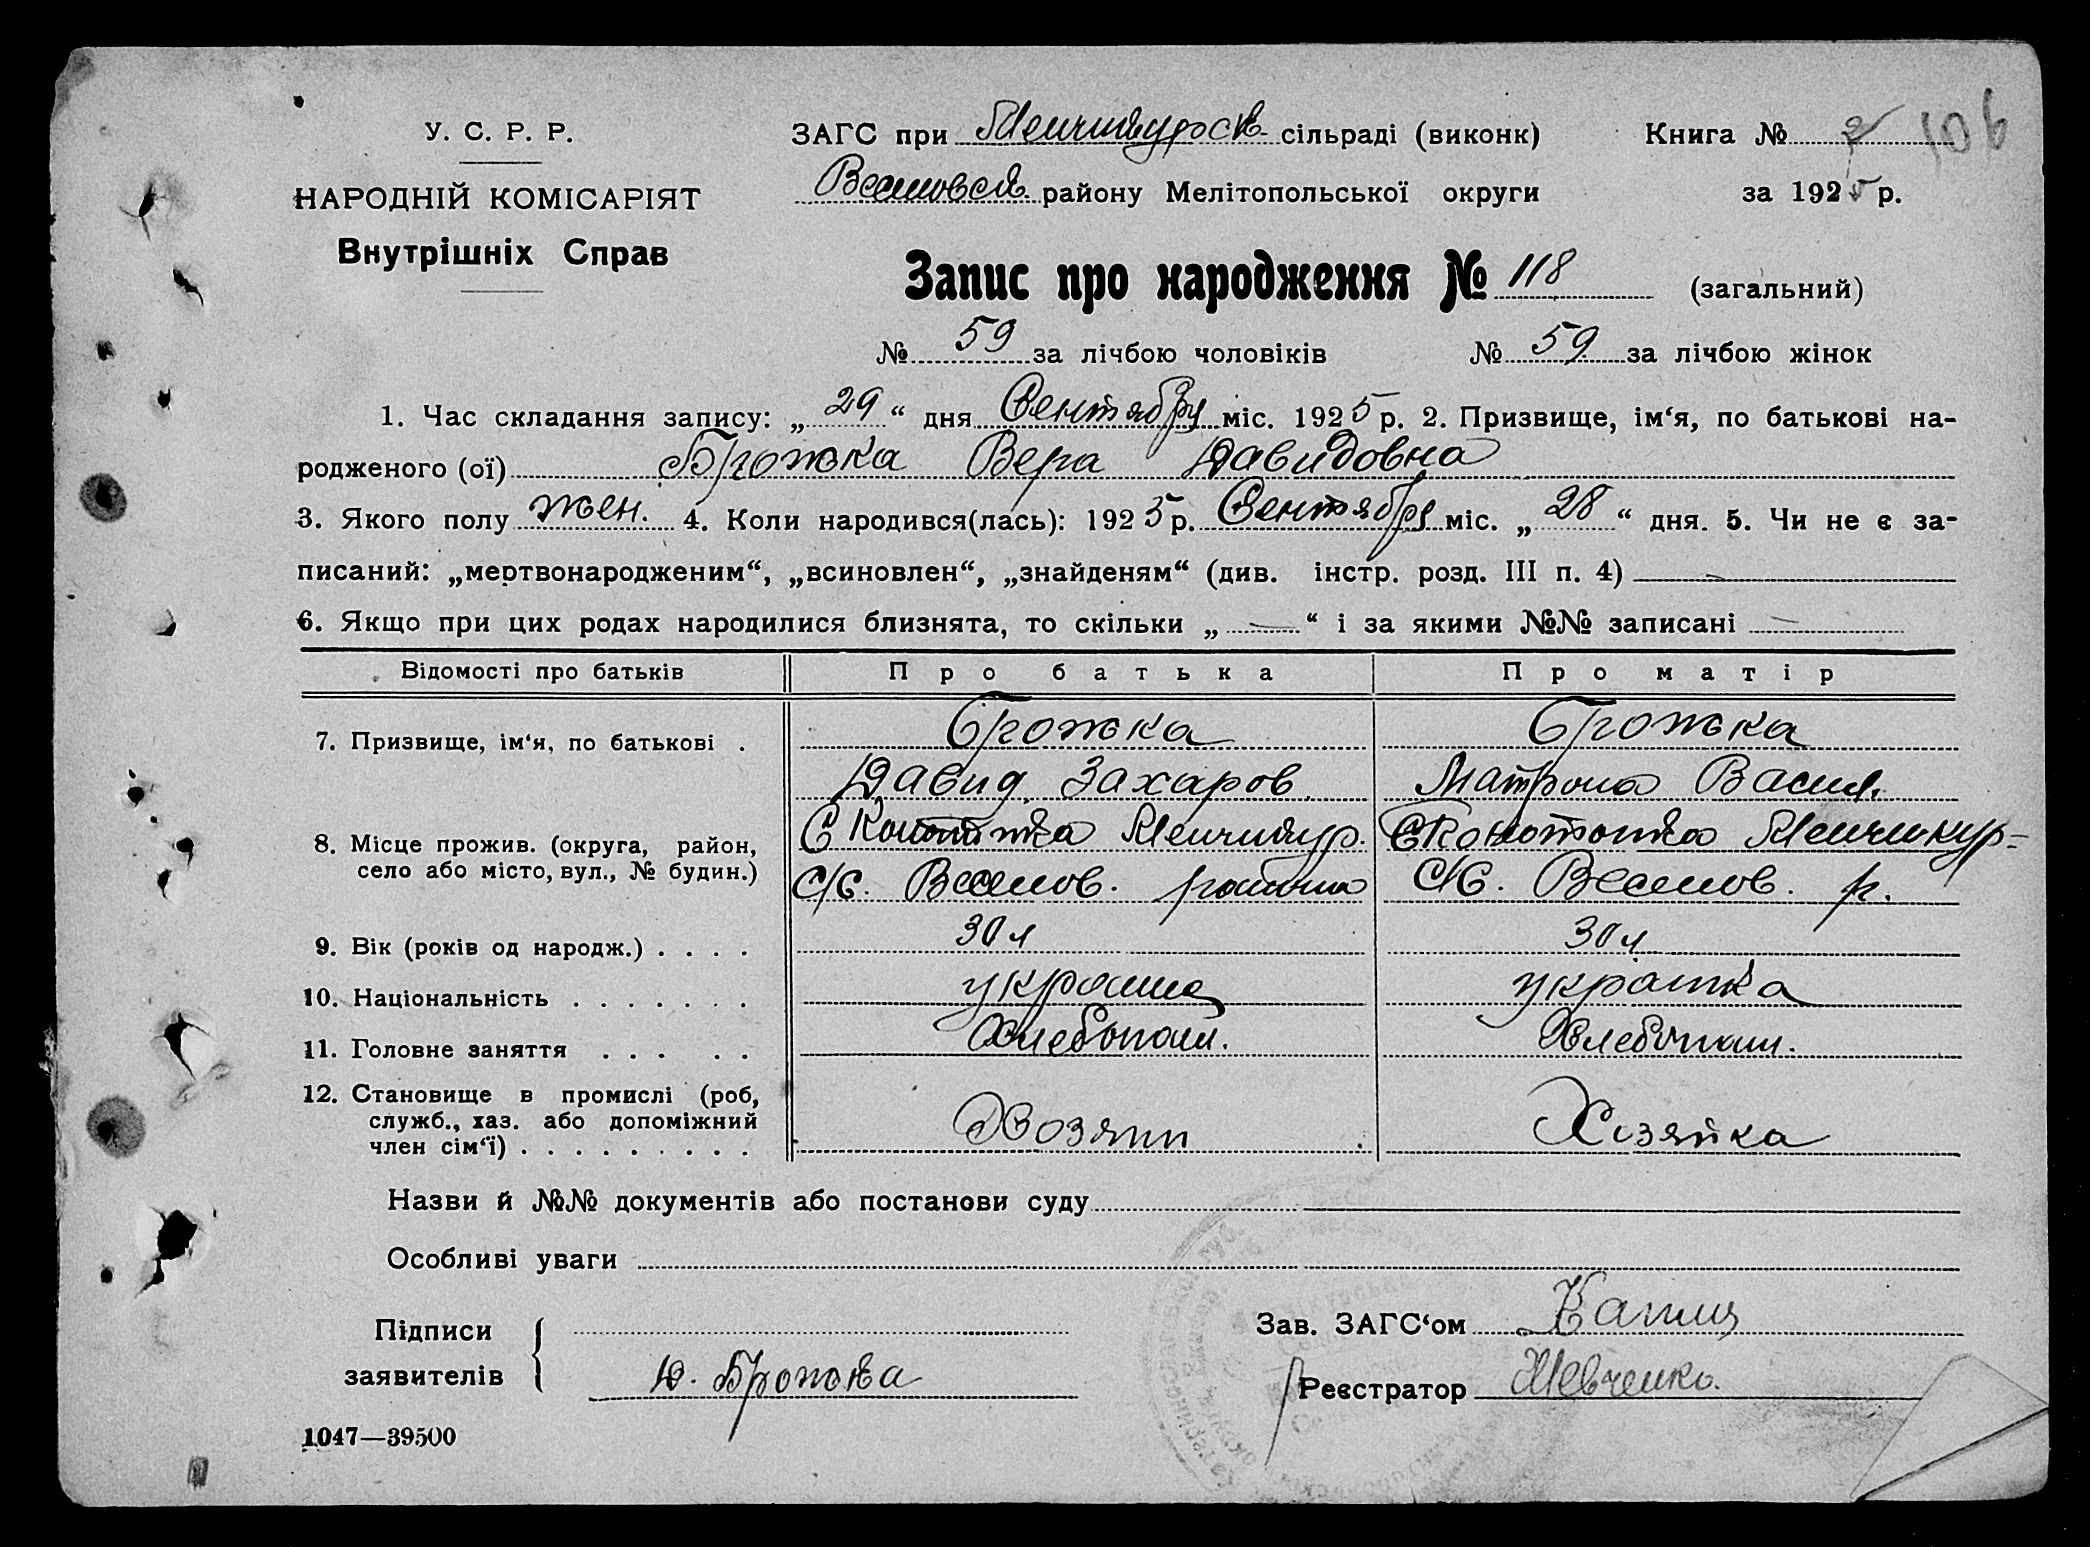 106
У. С. Р. Р.
НАРОДНІЙ КОМІСАРІЯТ
Внутрішніх Справ
ЗАГС при Менчикурск. сільраді (виконк)
Книга № 2
Веселовск. району Мелітопольської округи
за 1925 р.
Запис про народження № 118 (загальний)
№ 59 за лічбою чоловіків № 59 за лічбою жінок
1. Час складання запису: „ 29 “ дня Сентября міс. 1925 р. 2. Призвище, ім‘я, по батькові на-
родженого (ої) Брожка Вера Давидовна
3. Якого полу жен. 4. Коли народився(лась): 1925 р. Сентября міс. „ 28 “ дня. 5. Чи не є за-
писаний: „мертвонародженим“, „всиновлен“, „знайденям“ (див. інстр. розд. III п. 4) —
6. Якщо при цих родах народилися близнята, то скільки „ — “ і за якими №№ записані —
Відомості про батьків Про батька Про матір
7. Призвище, ім‘я, по батькові . Брожка Брожка
Давид Захаров. Матрона Васил.
8. Місце прожив. (округа, район, С Менчикур. Менчикур-
село або місто, вул., № будин.) с/С. Веселов. района с/С. Веселов. р.
9. Вік (років од народж.) . . . . 30 л 30 л
10. Національність . . . . . . . украинец украинка
11. Головне заняття . . . . . Хлебопаш. Хлебопаш.
12. Становище в промислі (роб,
служб., хаз. або допоміжний Хозяин Хозяйка
член сім‘ї) . . . . . . . . .
Назви й №№ документів або постанови суду
Особливі уваги
Підписи
заявителів
Д. Брожка
Зав. ЗАГС‘ом
Реєстратор Шевченко.
1047—39500